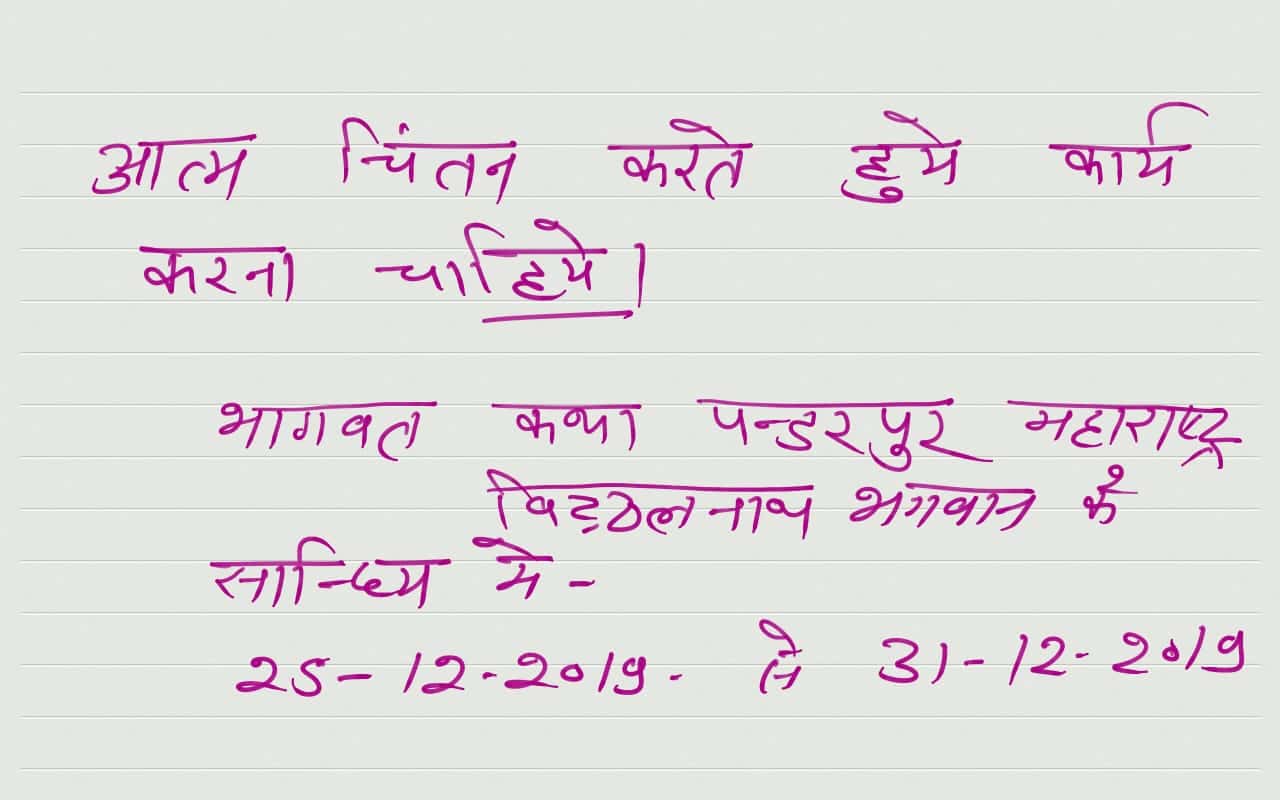 आत्म चिंतन करते हुये कार्य
करना चाहिये।
भागवत कथा पन्डरपुर महाराष्ट्र
विट्ठलनाथ भगवान के
सान्धिय मे -
25-12-2019. से 31-12-2019